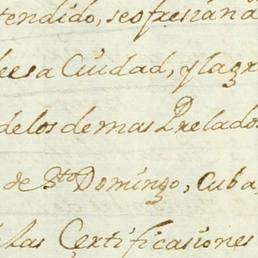 tendido, se ofresian a
esa Ciudad, y la gr
de los demas Prelados
de Sto Domingo, Cuba,
las Certificasiones